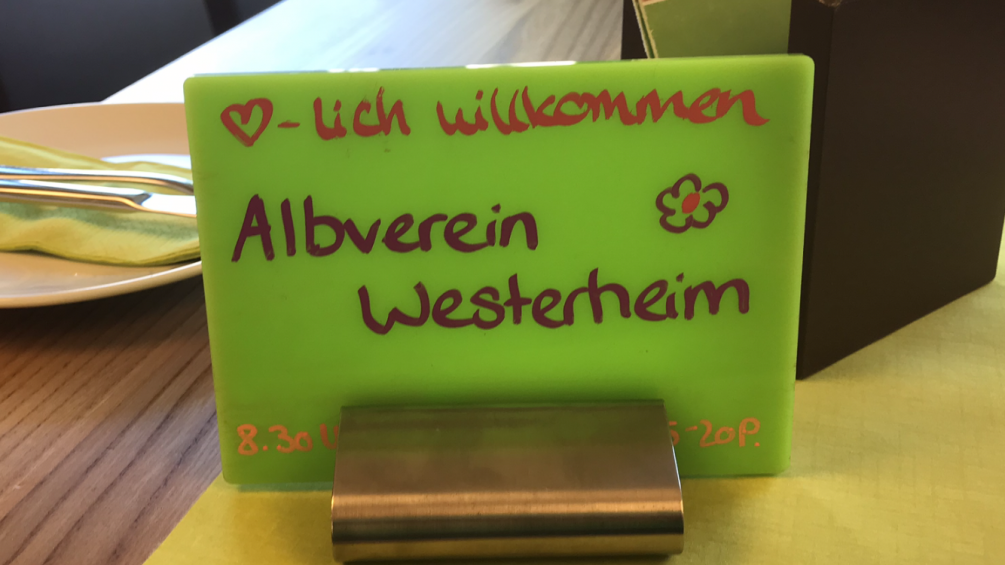 ♡-lich willkommen
Albverein
Westerheim
8.30 -20P.